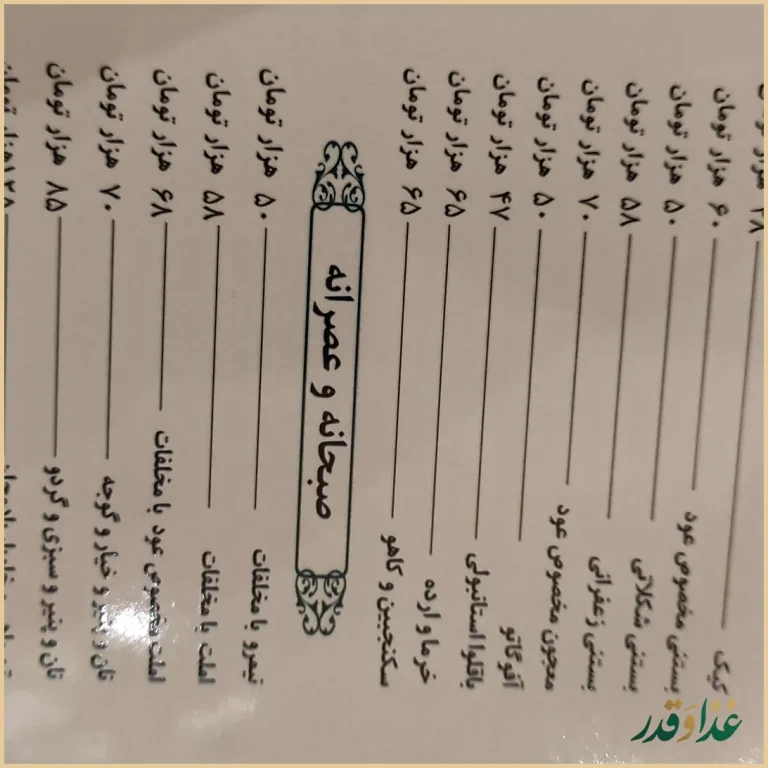 کیک
بستنی مخصوص عود ۶۰ هزار تومان
بستنی شکلاتی ۵۰ هزار تومان
بستنی زعفرانی ۵۸ هزار تومان
معجون مخصوص عود ۷۰ هزار تومان
آفوگاتو ۵۰ هزار تومان
باقلوا استانبولی ۴۷ هزار تومان
خرما و ارده ۶۵ هزار تومان
سکنجبین و کاهو ۶۵ هزار تومان
صبحانه و عصرانه
نیمرو با مخلفات ۵۰ هزار تومان
املت با مخلفات ۵۸ هزار تومان
املت مخصوص عود با مخلفات ۶۸ هزار تومان
نان و پنیر و خیار و گوجه ۷۰ هزار تومان
نان و پنیر و سبزی و گردو ۸۵ هزار تومان
غذا و قدر